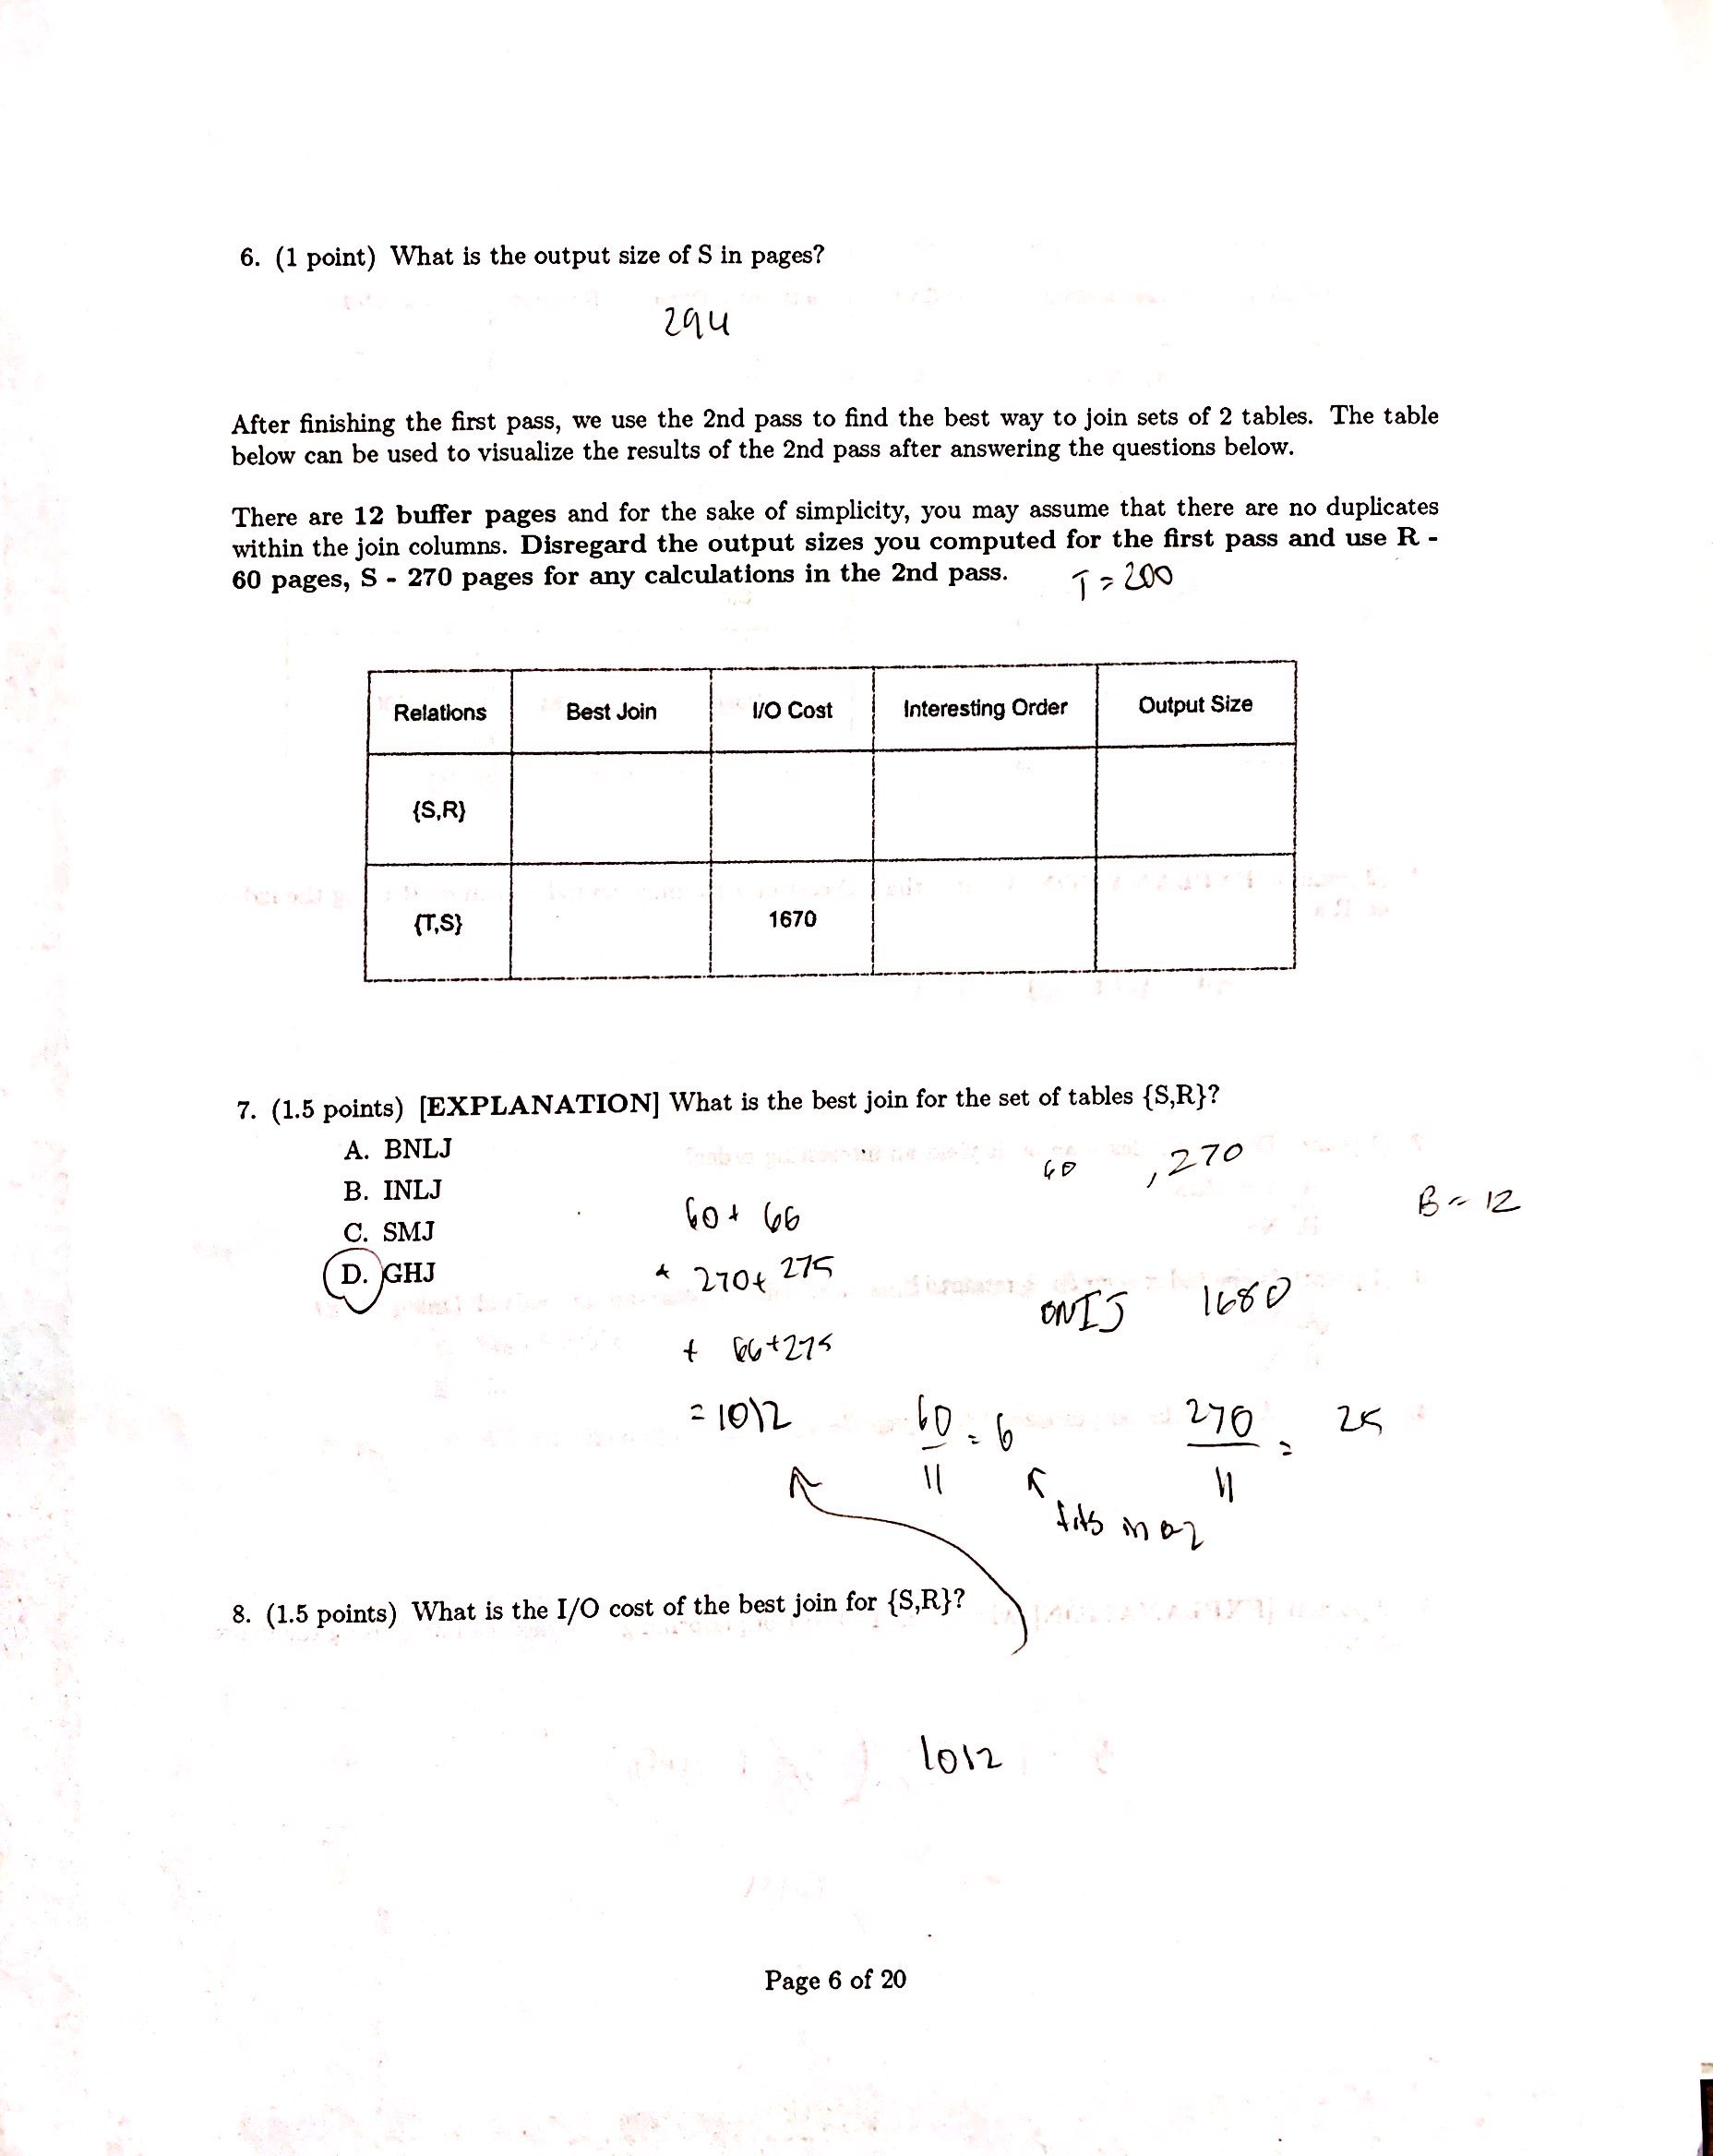 6. (1 point) What is the output size of S in pages?
294
After finishing the first pass, we use the 2nd pass to find the best way to join sets of 2 tables. The table
below can be used to visualize the results of the 2nd pass after answering the questions below.
There are 12 buffer pages and for the sake of simplicity, you may assume that there are no duplicates
within the join columns. Disregard the output sizes you computed for the first pass and use R -
60 pages, S - 270 pages for any calculations in the 2nd pass. T = 200
Relations Best Join I/O Cost Interesting Order Output Size
{S,R}
{T,S} 1670
7. (1.5 points) [EXPLANATION] What is the best join for the set of tables {S,R}?
A. BNLJ
60 , 270
B. INLJ
B = 12
60 + 66
C. SMJ
D. GHJ
+ 270 + 275
1680
+ 66 + 275
= 1012
60/11 = 6
270/11 = 25
fits in
8. (1.5 points) What is the I/O cost of the best join for {S,R}?
1012
Page 6 of 20